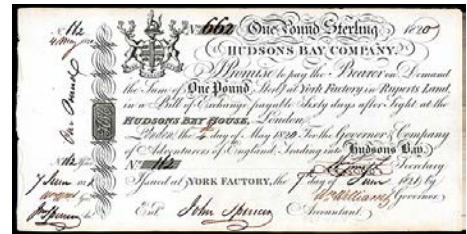 No 112
4 May 1820
One Pound
No 662 One Pound Sterling 1820
HUDSONS BAY COMPANY.
Promise to pay the Bearer on Demand
the Sum of One Pound Sterg at York Factory in Ruperts Land,
in a Bill of Exchange payable Sixty days after Sight at the
HUDSONS BAY HOUSE, London
London, the 4 day of May 1820 For the Governor & Company
of Adventurers of England, trading into Hudsons Bay.
No 112
No 112
Secretary
7 June 1821
Issued at YORK FACTORY, the 7th day of June 1821 by
Wm Williams Governor
Entd. John Spencer Accountant.